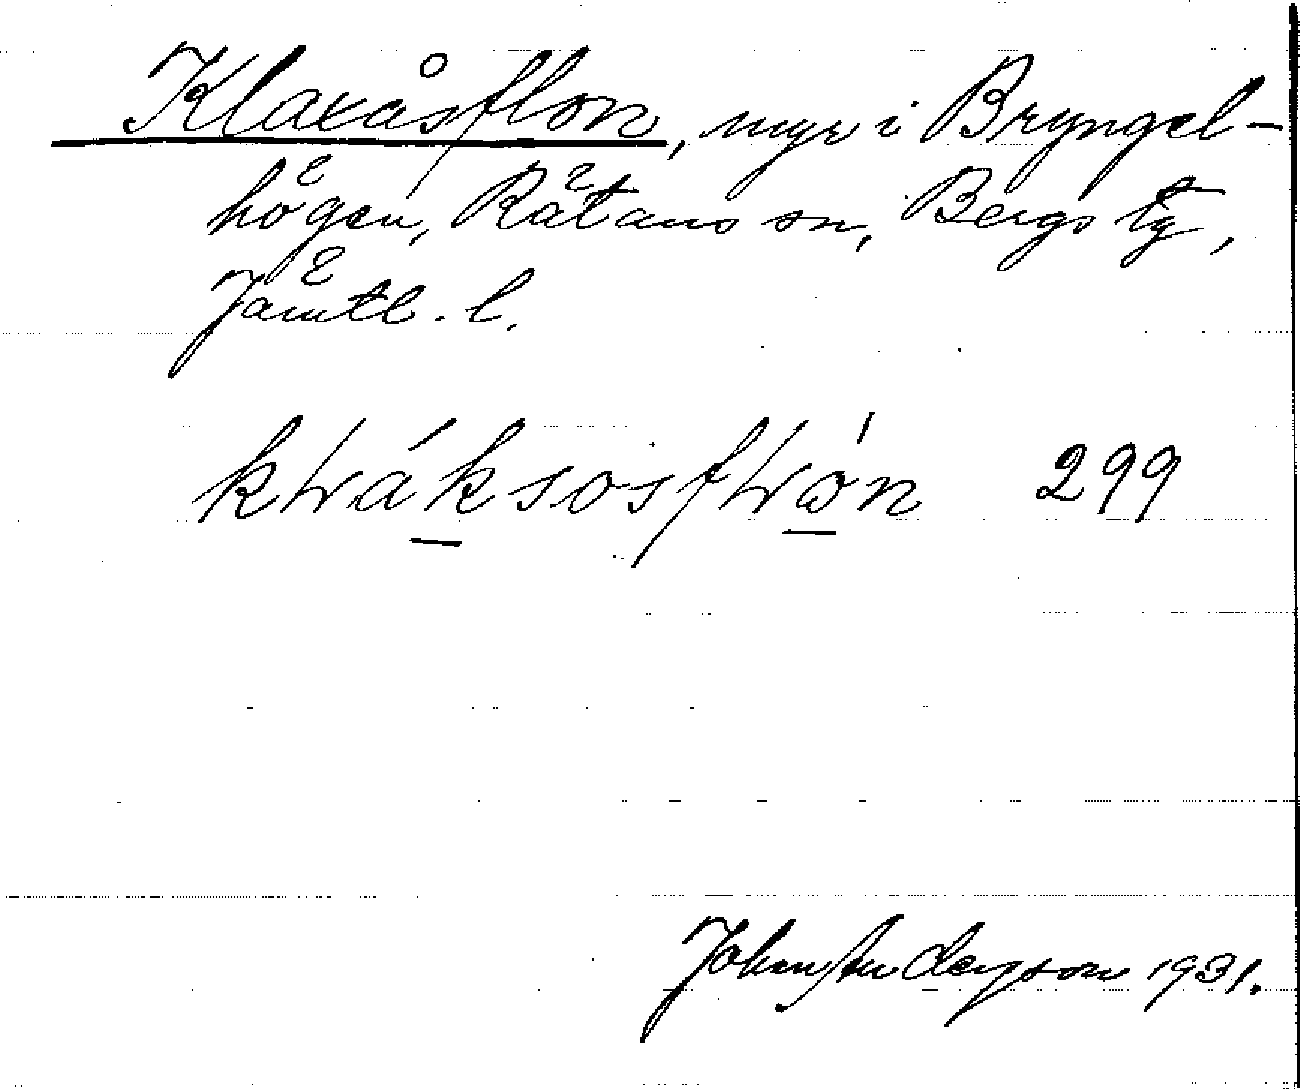 Klaxåsflon, myr i Bryngel-
högen, Rätans sn, Bergs tg,
Jämtl. l.
299
Johan Anderson 1931.